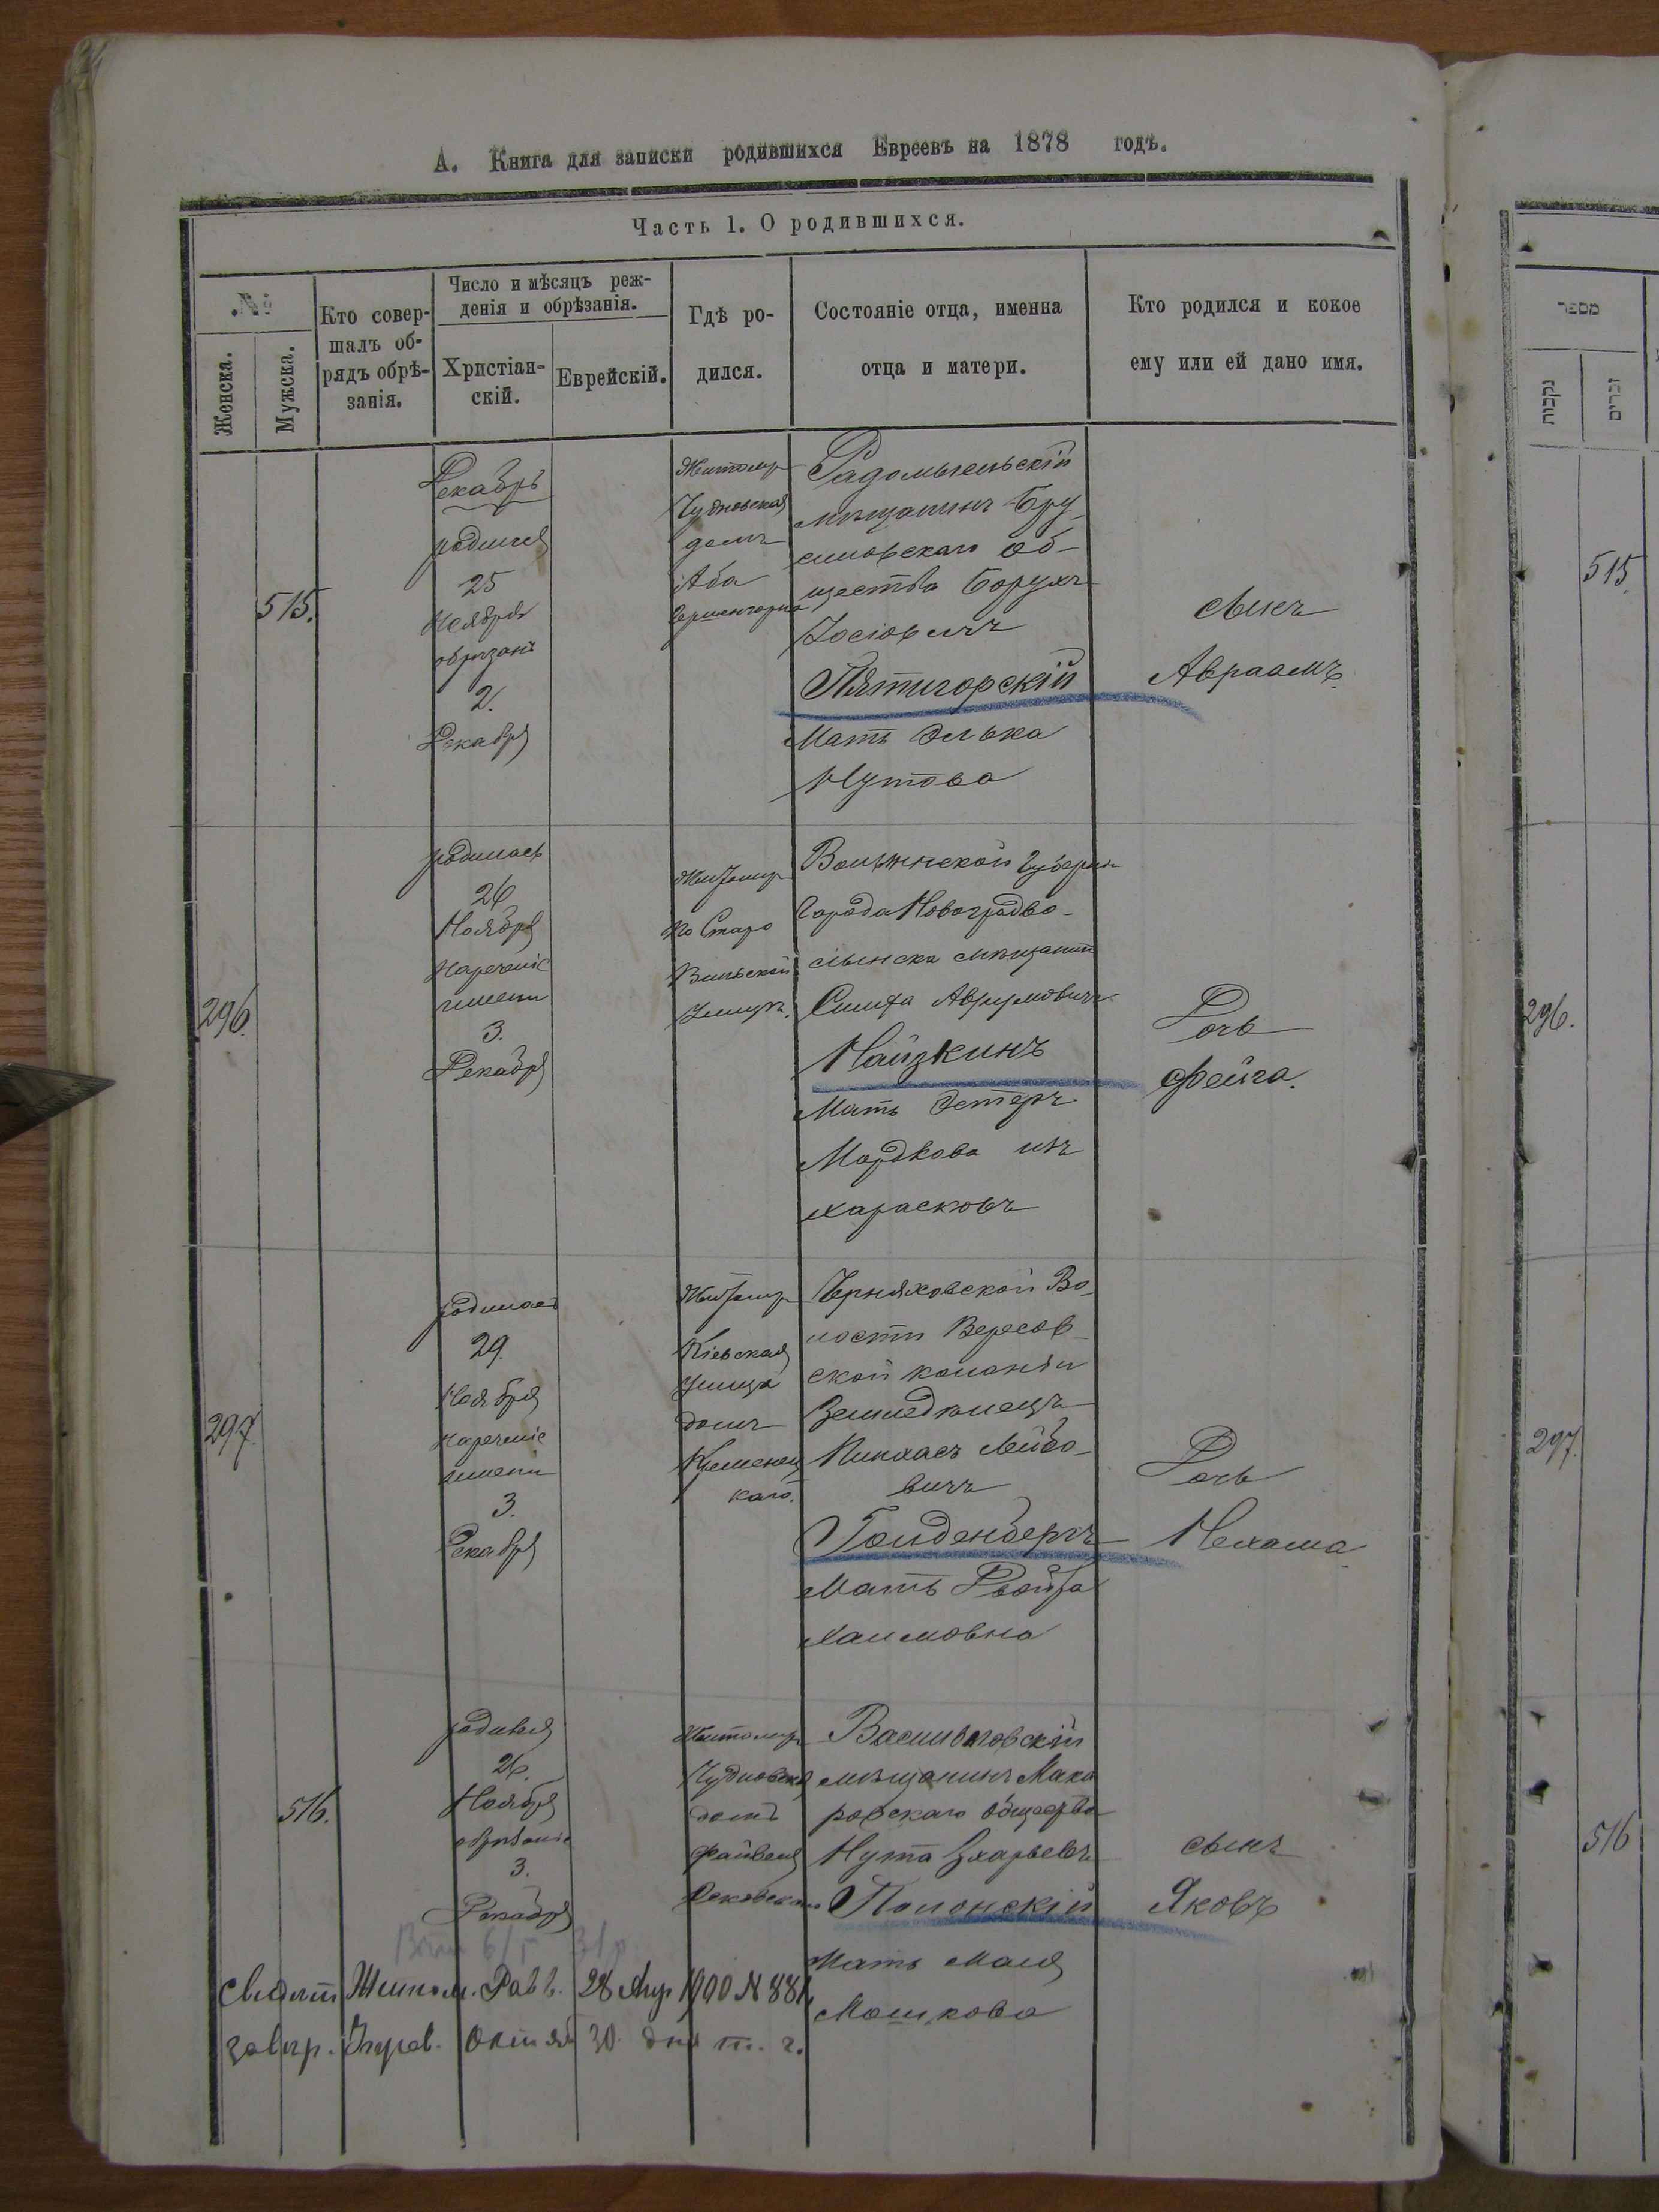 А. Книга для записки родившихся Евреевъ на 1878 годъ.
Часть 1. О родившихся.
№
Женска.
Мужска.
Кто совер-
шалъ об-
рядъ обрѣ-
занія.
Число и мѣсяцъ реж-
денія и обрѣзанія.
Христіан-
скій.
Еврейскій.
Гдѣ ро-
дился.
Состояніе отца, именна
отца и матери.
Кто родился и кокое
ему или ей дано имя.
515.
Декабрь
родился
25
Ноября
обрѣзанъ
2.
Декабря
Житомир
Чудновская
домъ
Аба
Радомысльскій
мѣщанинъ Бру
силовскаго об-
щества Борухъ
Іосіовичъ
Пятигорскій
Мать Элька
Нутова
сынъ
Авраамъ.
296.
родилась
26
Ноября
Нареченіе
имени
3.
Декабря
Житомир
По Старо
Вильской
улицѣ.
Волынской Губерніи
Города Новоградво-
лынска мѣщанинъ
Симха Аврумовичъ
Найзкинъ
Мать Эстеръ
Мордкова изъ
Харасковъ
Дочь
Фейга.
297.
родилась
29.
Ноября
Нареченіе
имени
3.
Декабря
Житомир
Кіевская
улица
домъ
Кременец
каго.
Черняховской Во-
лости Вересов-
ской колоніи
Земледѣлецъ
Пинхасъ Лейбо-
вичъ
Гольденбергъ
Мать Двойра
Хаимовна
Дочь
Нехама
516.
родился
26.
Ноября
обрѣзаніе
3.
Декабря
Житомир
Чудновская
домъ
Файвеля
Васильковскій
мѣщанинъ Мака
ровскаго общества
Нута Зхарьевъ
Полонскій
Мать Маля
Мошкова
сынъ
Яковъ
Свидѣт Житом. Равв. 28 1900 N 881
30. дня т. г.
מספר
נקבות
זכרים
515.
296.
297.
516